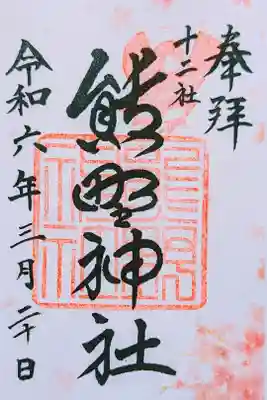 奉拝
十二社
熊野神社
令和六年三月二十日